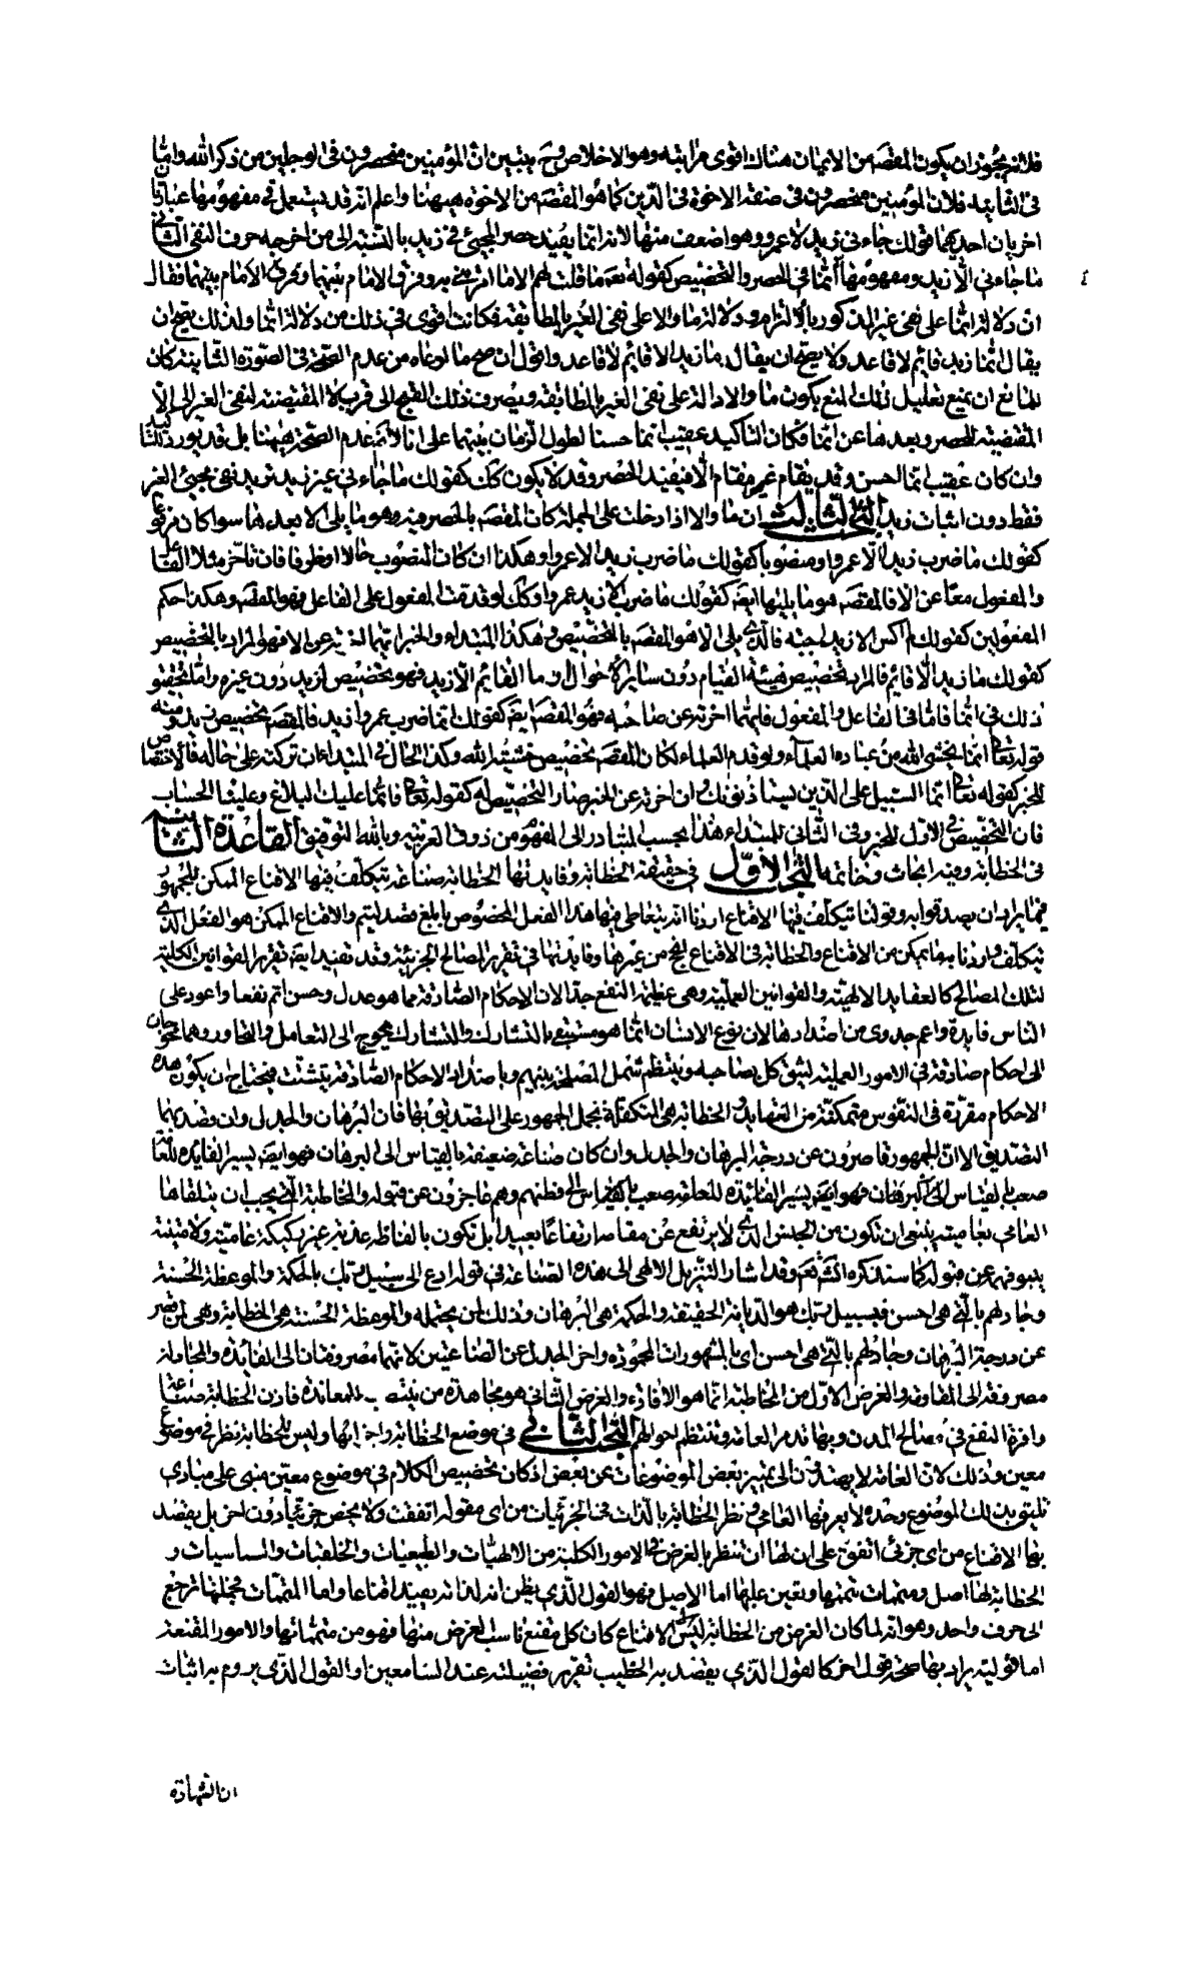 فلانه يجوز ان يكون المقصد من الايمان هناك اقوى مراتبه وهو الاخلاص وح يتبين ان المؤمنين منحصرون فى الوجلين من ذكر الله واما
فى الثانية فلان المؤمنين منحصرون فى صفة الاخوة فى الدين كما هو المقصد من الاخوة هيهنا واعلم انه قد يستعمل فى مفهومها عبارتا
اخريان احديهما قولك جاءنى زيد لا عمرو وهو اضعف منها لانه انما يفيد حصر المجيئ فى زيد بالنسبة الى من اخرجه حرف النفى الثانى
ما جاءنى الا زيد ومفهومها انما فى الحصر والتخصيص كقوله تعه ما قلت لهم الا ما امرتنى به وفرق الامام بينهما فقال
ان دلالة انما على نفى غير المذكور بالالتزام ودلالة ما والا على نفى الغير بالمطابقة فكانت اقوى فى ذلك من دلالة انما ولذلك يصح ان
يقال انما زيد قائم لا قاعد ولا يصح ان يقال ما زيد الا قائم لا قاعد واقول ان صح ما ادعاه من عدم الصحة فى الصورة الثانية كان
للمانع ان يمنع تعليل ذلك المنع بكون ما والا دالة على نفى الغير بالمطابقة ويصرف ذلك القبح الى قرب لا المقتضية لنفى الغير الى الا
المقتضية للحصر وبعدها عن انما فكان التاكيد عقيب انما حسنا لطول الزمان بينهما على انا لا نم عدم الصحة هيهنا بل قد يورد التاكيد
وان كان عقيب انما احسن وقد يقام غير مقام الا فيفيد الحصر وقد لا يكون كك كقولك ما جاءنى غير زيد تريد نفى مجيئ الغير
فقط دون اثبات زيد البحث الثالث ان ما والا اذا دخلت على الجملة كان المقصد بالحصر فيه وهو ما يلى الا بعدها سواء كان مرفوعا
كقولك ما ضرب زيدا الا عمرو او منصوبا كقولك ما ضرب زيد الا عمرا وهكذا ان كان المنصوب حالا او ظرفا فان تاخر مثلا الفاعل
والمفعول معا عن الا فالمقصد هو ما يليها ايضه كقولك ما ضرب الا زيد عمروا وكك لو قدمت المفعول على الفاعل فهو المقصد وهكذا حكم
المفعولين كقولك لم اكس الا زيدا جبة فالذى يلى الا هو المقصد بالتخصيص وهكذا المبتداء والخبر ايهما اخرته عن الا فهو المراد بالتخصيص
كقولك ما زيد الا قائم فالمراد تخصيص هيئة القيام دون ساير الاحوال وما القائم الا زيد فهو تخصيص لزيد دون غيره واما تحقيق
ذلك فى انما فاما فى الفاعل والمفعول فايهما اخرته عن صاحبه فهو المقصد ايضه كقولك انما ضرب عمروا زيد فالمقصد تخصيص زيد ومنه
قوله تعالى انما يخشى الله من عباده العلماء ولو قدم العلماء لكان المقصد تخصيص خشية الله وكذا الحال فى المبتداء ان تركته على حاله فالاختصاص
للخبر كقوله تعالى انما السبيل على الذين يستاذنونك وان اخرته عن الخبر صار التخصيص له كقوله تعالى فانما عليك البلاغ وعلينا الحساب
فان التخصيص فى الاول للخبر وفى الثانى للمبتداء هذا بحسب المتبادر الى الفهم من ذوق العربية وبالله التوفيق القاعدة الثانية
فى الخطابة وفيه ابحاث وخاتمة البحث الاول فى حقيقة الخطابة وفايدتها الخطابة صناعة يتكلف فيها الاقناع الممكن للجمهور
فيما يراد ان يصدقوا به وقولنا يتكلف فيها الاقناع اردنا انه يتعاطى فيها هذا الفعل المخصوص بابلغ قصد ليتم والاقناع الممكن هو الفعل الذى
يتكلف واردنا به ما يمكن من الاقناع والخطابة فى الاقناع انجح من غيرها وفايدتها فى تقرير المصالح الجزئية وقد تفيد ايضه تقرير القوانين الكلية
لتلك المصالح كالعقايد الالهية والقوانين العملية وهى عظيمة النفع جدا لان الاحكام الصادقة مما هو عدل وحسن اتم نفعا واعود على
الناس فايدة واعم جدوى من اضدادها لان نوع الانسان انما هو مستبقى بالتشارك والتشارك محوج الى التعامل والتحاور وهما محوجان
الى احكام صادقة فى الامور العملية ليثق كل بصاحبه وينتظم شمل المصلحة بينهم وباضداد الاحكام الصادقة يتشتت فيحتاج ان يكون هذه
الاحكام مقررة فى النفوس متمكنة من العقايد والخطابة هى المتكفلة بحمل الجمهور على التصديق بها فان البرهان والجدل وان قصد بهما
التصديق الا ان الجمهور قاصرون عن درجة البرهان والجدل وان كان صناعة ضعيفة بالقياس الى البرهان فهو ايضه يسير الفائدة للعامة
صعب بالقياس الى البرهان فهو ايضه يسير الفائدة للعامة صعب بالقياس الى فطنهم وهم عاجزون عن قبوله والمخاطبة التى يجب ان يتلقاها
العامى بعاميته ينبغى ان تكون من الجنس الذى لا يرتفع عن مقامه ارتفاعا بعيدا بل تكون بالفاظ عذبة غير ركيكة عامية ولا متينة
ينبو فهمه عن قبوله كما سنذكره انشاء الله تعه وقد اشار التنزيل الالهى الى هذه الصناعة فى قوله ادع الى سبيل ربك بالحكمة والموعظة الحسنة
وجادلهم بالتى هى احسن فسبيل ربك هو الديانة الحقيقة والحكمة هى البرهان وذلك لمن يحتمله والموعظة الحسنة هى الخطابة وهى لمن قصر
عن درجة البرهان وجادلهم بالتى هى احسن اى بالمشهورات المحمودة واخر الجدل عن الصناعتين لانهما مصروفتان الى الفائدة والمجادلة
مصروفة الى المقاومة والغرض الاول من المخاطبة انما هو الافادة والغرض الثانى هو مجاهدة من ينتصب للمعاندة فاذن الخطابة صناعة
وافرة النفع فى مصالح المدن وبها تدبر العامة وتنتظم احوالهم البحث الثانى فى موضع الخطابة واجزائها وليس للخطابة نظر فى موضوع
معين وذلك لان العامة لا يهتدون الى تمييز بعض الموضوعات عن بعض اذ كان تخصيص الكلام فى موضوع معين مبنى على مبادى
تليق بذلك الموضوع وحده ولا يعرفها العامى ونظر الخطابة بالذات فى الجزئيات من اى مقولة اتفقت ولا يخص جزئيا دون اخر بل يقصد
بها الاقناع من اى جزئى اتفق على ان لها ان تنظر بالعرض فى الامور الكلية من الالهيات والطبيعيات والخلقيات والسياسيات و
الخطابة لها اصل ومتممات تتمها وتعين عليها اما الاصل فهو القول الذى يظن انه لذاته يفيد اقناعا واما المتممات فجملتها ترجع
الى حرف واحد وهو انه لما كان الغرض من الخطابة ليس الا الاقناع كان كل مقنع ناسب الغرض منها فهو من متمماتها والامور المقنعة
اما قولية يراد بها صحة قول اخر كالقول الذى يقصد به الخطيب تقرير فضيلته عند السامعين او القول الذى يروم به اثبات
ان الشهادة